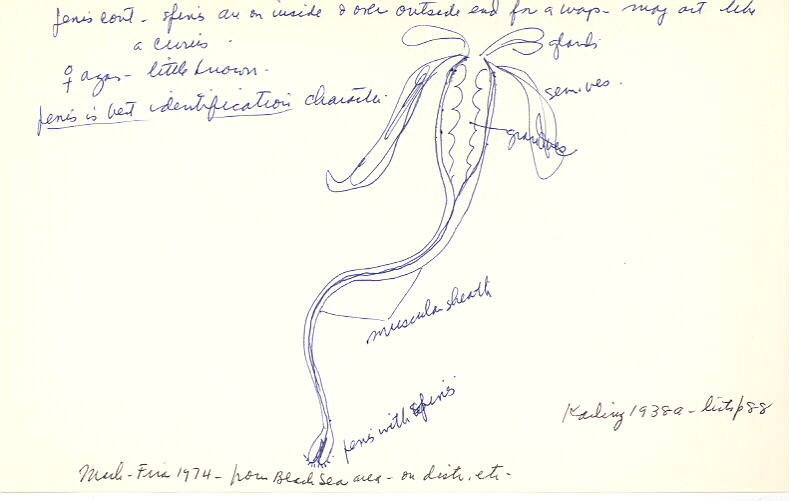 penis cont - spines are on inside & over outside end for a ways - may act like
a cirrus.
♀ organs - little known.
penis is best identification character.
glands
sem. ves.
gran. ves
muscular sheath
penis with spines
Karling 1938a - lists p 88
Mack-Fira 1974 - from Black Sea area - on distr. etc.